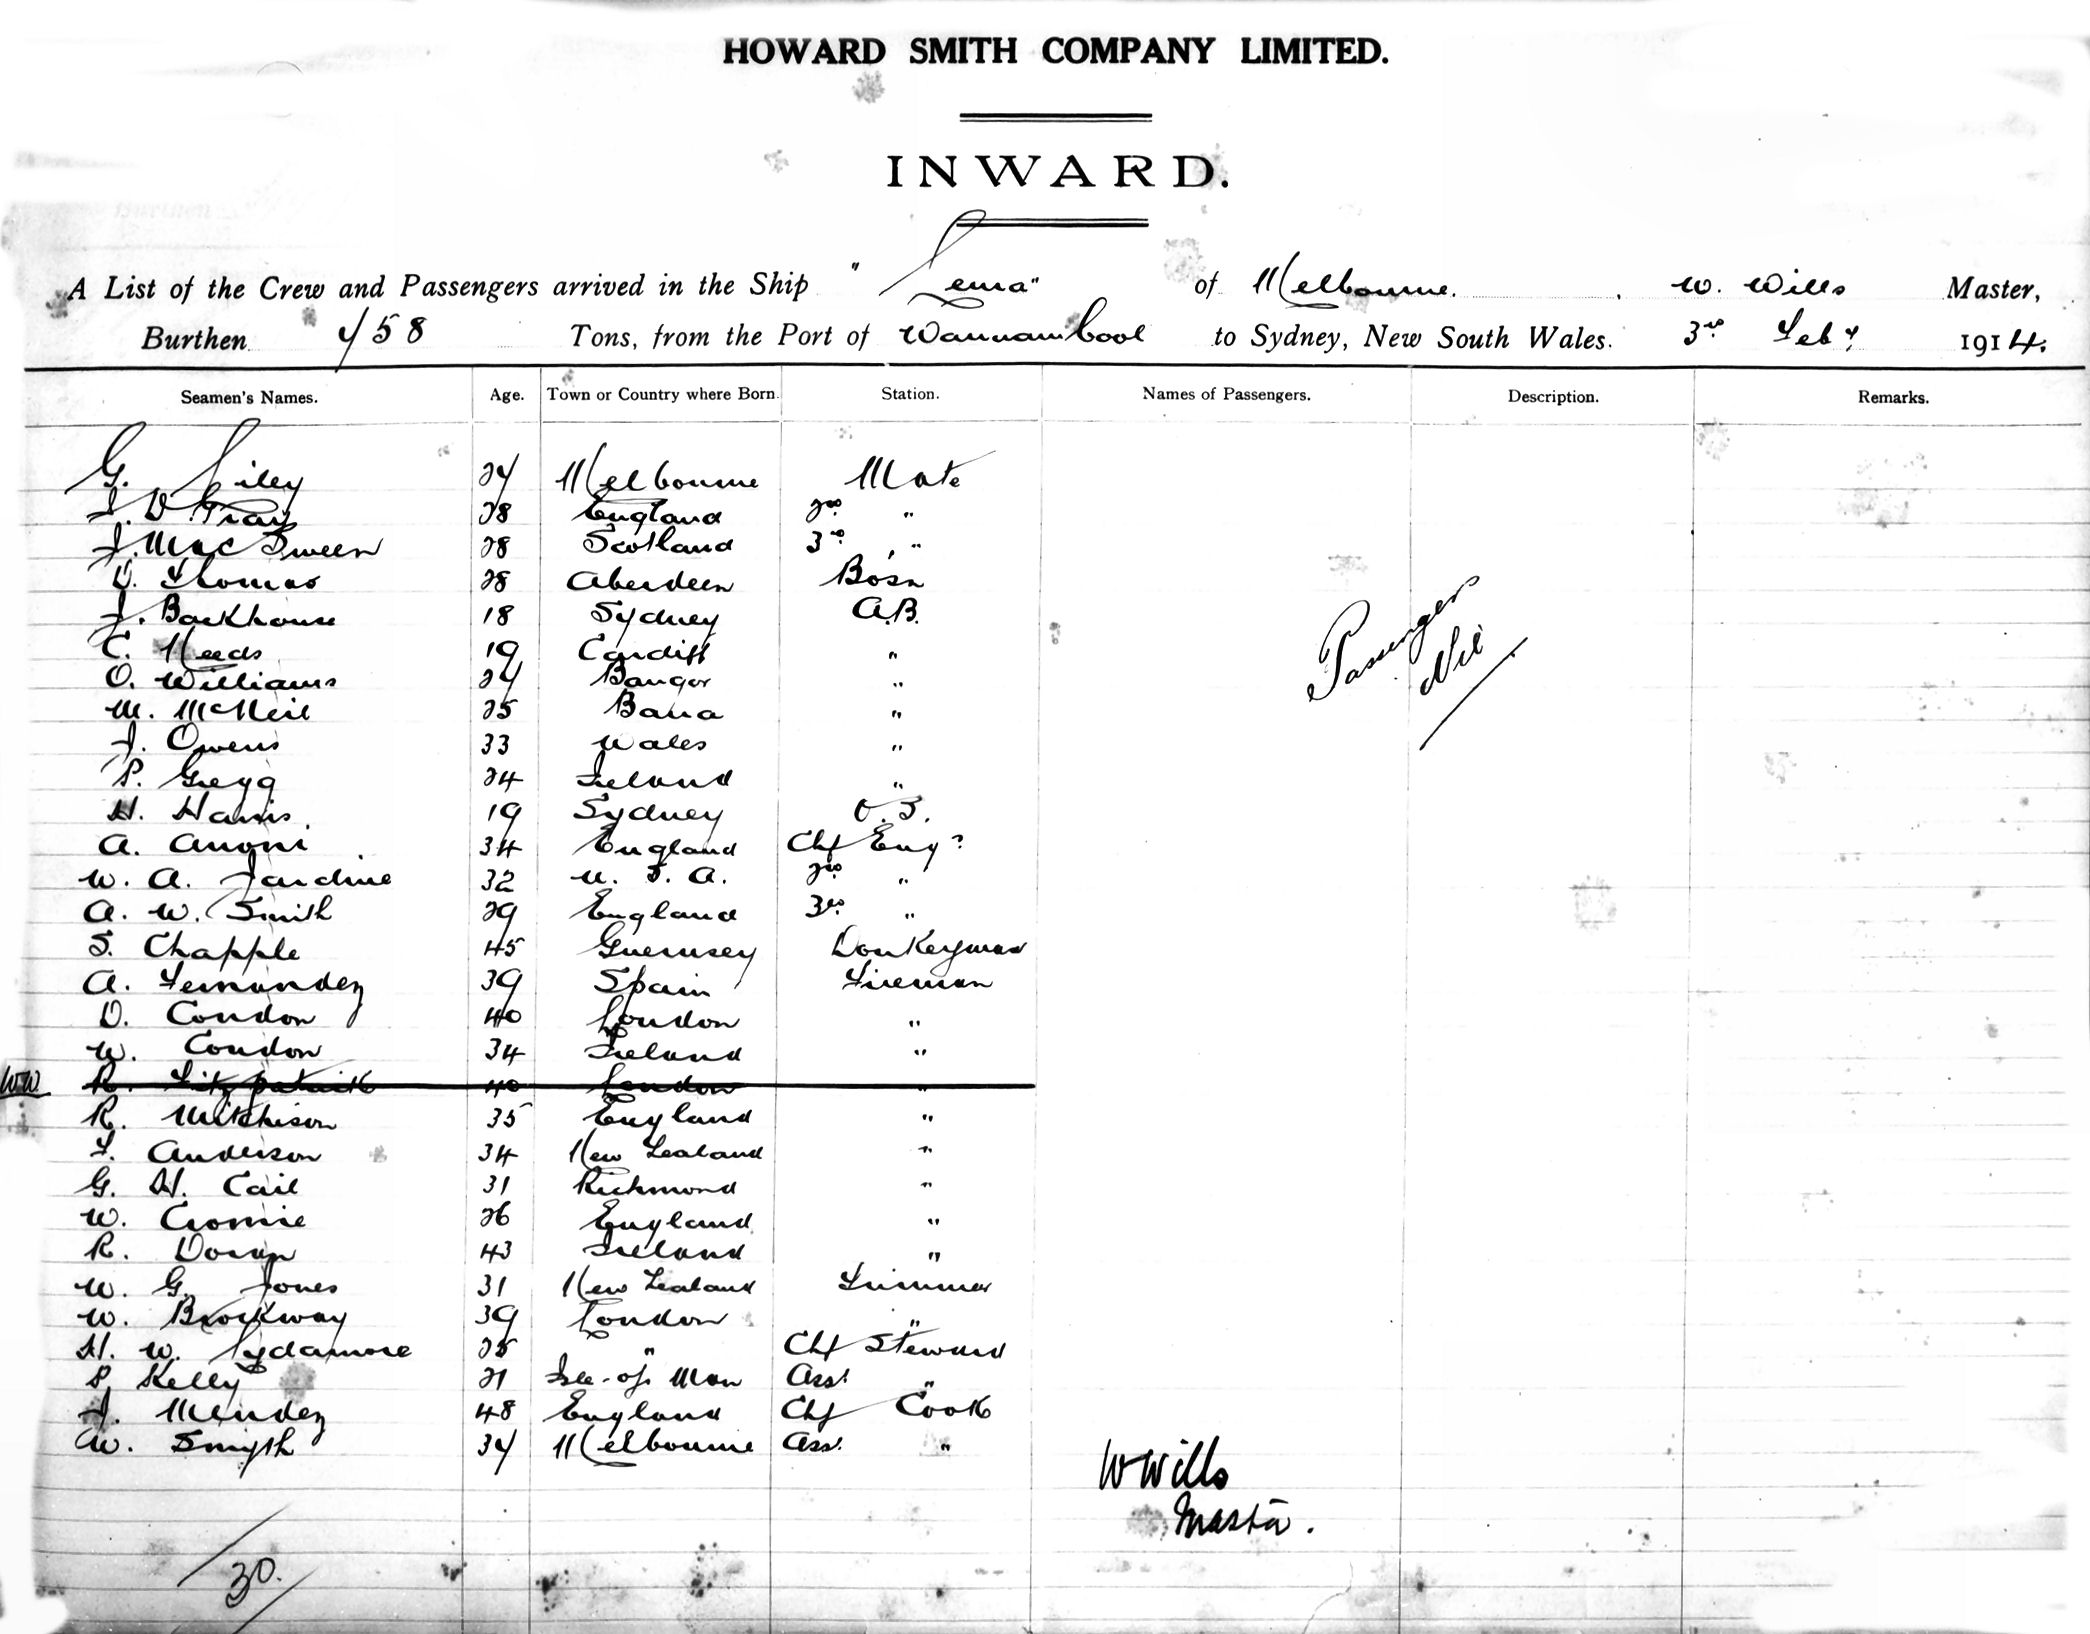 HOWARD SMITH COMPANY LIMITED.
INWARD.
A List of the Crew and Passengers arrived in the Ship " Lema" of Melbourne. W. Wills Master,
Burthen 758 Tons, from the Port of Warrnambool to Sydney, New South Wales. 3rd Feby 1914.
Seamen's Names. Age. Town or Country where Born. Station. Names of Passengers. Description. Remarks.
G. Liley 27 Melbourne Mate
J. D. Gray 28 England 2nd "
J. MacSween 28 Scotland 3rd "
D. Thomas 28 Aberdeen Bosn
J. Backhouse 18 Sydney A.B.
C. Needs 19 Cardiff "
O. Williams 27 Bangor "
M. McNeil 25 Barra "
J. Owens 33 Wales "
P. Gregg 24 Ireland "
H. Harris. 19 Sydney O.S.
A. Anoni 34 England Chf Engr
W. A. Jardine 32 U. S. A. 2nd "
A. W. Smith 29 England 3rd "
S. Chapple 45 Guernsey Donkeyman
A. Fernandez 39 Spain Fireman
D. Condon 40 London "
W. Condon 34 Ireland "
WW R. Fitzpatrick 40 London "
R. Mitchison 35 England "
F. Anderson 34 New Zealand "
G. H. Cail 31 Richmond "
W. Cromie 26 England "
R. Doran 43 Ireland "
W. G. Jones 31 New Zealand Trimmer
W. Brockway 39 London "
H. W. Lydamore 25 " Chf Steward
P Kelly 21 Isle-of Man Asst "
J. Mendez 48 England Chf Cook
W. Smyth 37 Melbourne Asst "
Passengers
Nil
W Wills
Master.
30.